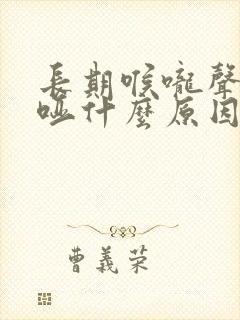 長期喉嚨聲
啞什麼原因
曹義荣